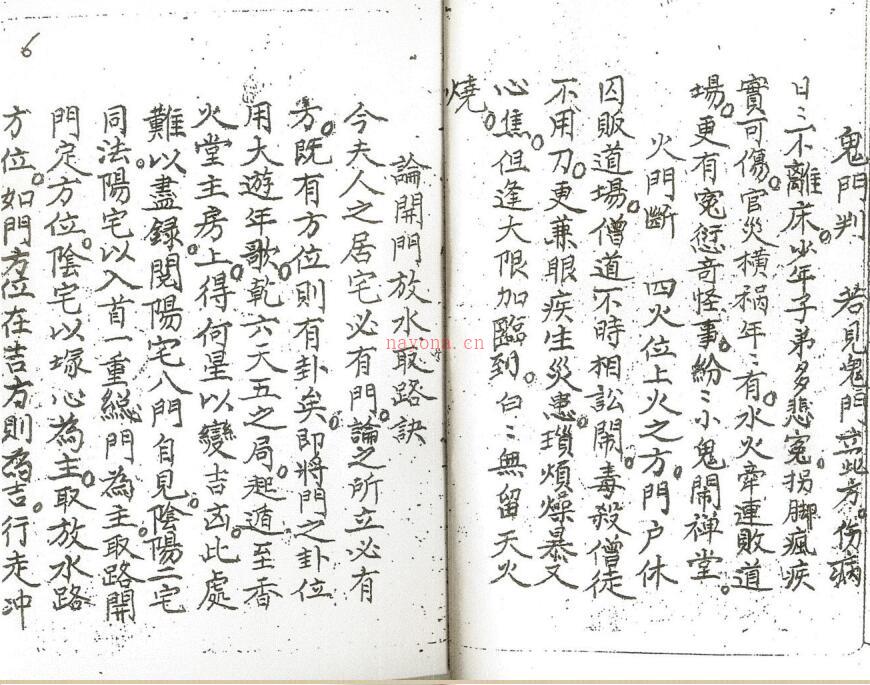 鬼門判　若見鬼門立此方。伤病
日〻不離床。少年子弟多悲冤。拐脚瘋疾
實可傷。官災橫祸年〻有。水火牽連敗道
場。更有冤愆奇怪事。紛〻小鬼鬧禅堂。
火門斷　四火位上火之方。門户休
囚敗道場。僧道不時相訟鬧。毒殺僧徒
不用刀。更兼眼疾生災患。瑣煩燥暴又
心焦。但逢大限加臨到。白〻無留天火
燒。
論開門放水取路訣
今夫人之居宅必有門。論之所立必有
方。既有方位則有卦矣。即將門之卦位
用大遊年歌。乾六天五之局。起遁至香
火堂主房上。得何星以變吉凶。此處
難以盡録。閱陽宅八門自見。陰陽二宅
同法。陽宅以入首一重総門為主。取路開
門定方位。陰宅以塚心為主。取放水路
方位。如門方位在吉方則為吉。行走冲
6
nayona.cn